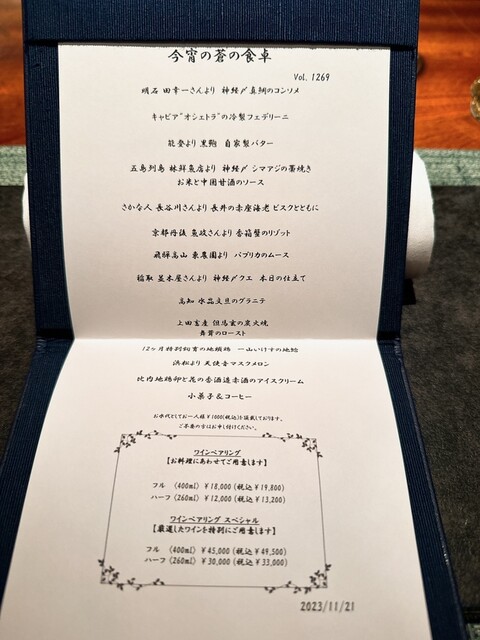 今宵の蒼の食卓
Vol. 1269
明石 田幸一さんより 神経〆真鯛のコンソメ
キャビア"オシェトラ"の冷製フェデリーニ
能登より黒鮑 自家製バター
五島列島 林鮮魚店より 神経〆シマアジの藁焼き
お米と中国甘酒のソース
さかな人 長谷川さんより 長井の赤座海老 ビスクとともに
京都丹後 魚政さんより 香箱蟹のリゾット
飛騨高山 東農園より パプリカのムース
稲取 並木屋さんより 神経〆クエ 本日の仕立て
高知 水晶文旦のグラニテ
上田畜産 但馬玄の炭火焼
舞茸のロースト
12ヶ月特別飼育の地頭鶏 一山いけすの地鮑
浜松より 天使音マスクメロン
比内地鶏卵と花の香酒造赤酒のアイスクリーム
小菓子&コーヒー
お水代としてお一人様¥1000(税込)を頂戴しております。
ご不要の方はお申し付けください。
ワインペアリング
【お料理にあわせてご用意します】
フル 〈400ml〉 ¥18,000 (税込¥19,800)
ハーフ 〈260ml〉 ¥12,000 (税込¥13,200)
ワインペアリング スペシャル
【厳選したワインを特別にご用意します】
フル 〈400ml〉 ¥45,000 (税込¥49,500)
ハーフ 〈260ml〉 ¥30,000 (税込¥33,000)
2023/11/21